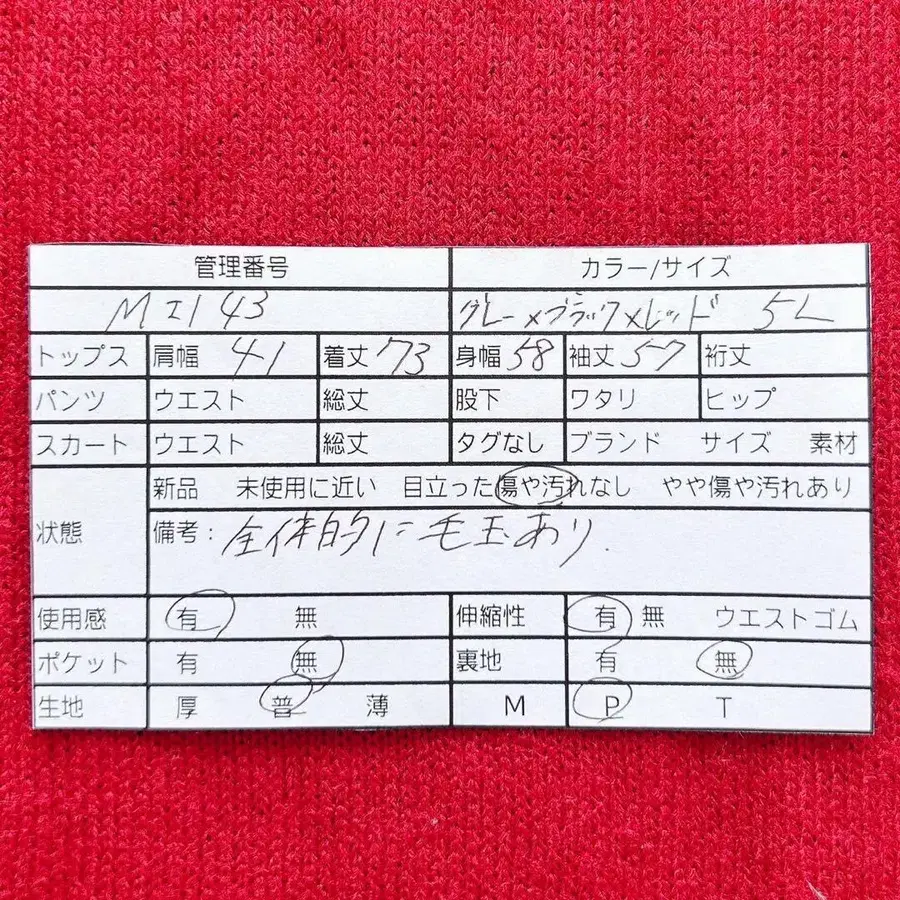 管理番号 カラー/サイズ
MI143 グレー×ブラック×レッド 5L
トップス 肩幅 41 着丈 73 身幅 58 袖丈 57 裄丈
パンツ ウエスト 総丈 股下 ワタリ ヒップ
スカート ウエスト 総丈 タグなし ブランド サイズ 素材
状態 新品 未使用に近い 目立った傷や汚れなし やや傷や汚れあり
備考：全体的に毛玉あり.
使用感 有 無 伸縮性 有 無 ウエストゴム
ポケット 有 無 裏地 有 無
生地 厚 普 薄 M P T